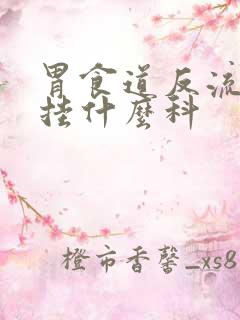 胃食道反流
挂什麽科
橙市香馨_xs8